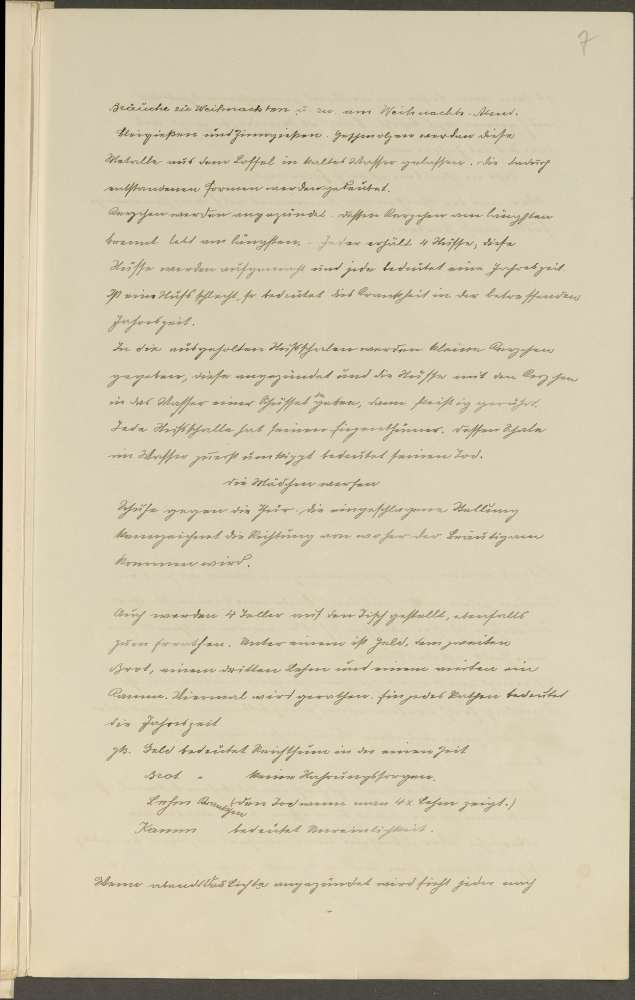 7
Bräuche zu Weihnachten u. zw. am Weihnachts-Abend.
Bleigießen und Zinngießen. Geschmolzen werden diese
Metalle aus dem Löffel in kaltes Wasser gelassen. Die dadurch
entstandenen Formen werden gedeutet.
Kerzchen werden angezündet. dessen Kerzchen am längsten
brennt lebt am längsten. - Jeder erhält 4 Nüsse, diese
Nüsse werden aufgemacht und jede bedeutet eine Jahreszeit.
Ist eine Nuß schlecht, so bedeutet dies Krankheit in der betreffenden
Jahreszeit.
In die ausgeholten Nußschalen werden kleine Kerzchen
gegeben, diese angezündet und die Nüsse mit den Kerzchen
in das Wasser einer Schüssel gegeben, dann fleißig gerührt.
Jede Nußschalle hat seinen Eigenthümer. Dessen Schale
im Wasser zuerst umkippt bedeutet seinen Tod.
Die Mädchen werfen
Schuhe gegen die Thür. Die eingeschlagene Stellung
kennzeichnet die Richtung von woher der Bräutigam
kommen wird.
Auch werden 4 Teller auf den Tisch gestellt, ebenfalls
zum errathen. Unter einem ist Geld, dem zweiten
Brot, einem dritten Lehm und einem vierten ein
Kamm. Viermal wird gerathen. Ein jedes Rathen bedeutet
die Jahreszeit
zB. Geld bedeutet Reichthum in der einen Zeit
Brot " keine Nahrungssorgen.
Lehm Krankheit (den Tod wenn man 4x Lehm zeigt.)
Kamm bedeutet Unreinlichkeit.
Wenn abends das Licht angezündet wird sieht jeder nach